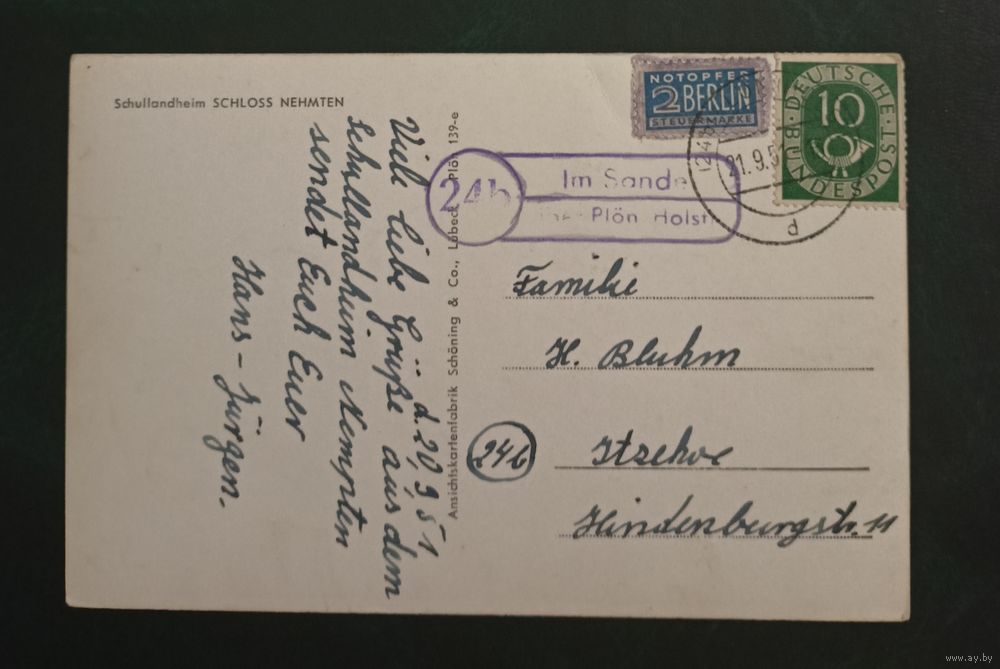 Schullandheim SCHLOSS NEHMTEN
d. 20 9 51
Viele liebe Grüße aus dem
Schullandheim Nempten
sendet Euch Euer
Hans-Jürgen.
Ansichtskartenfabrik Schöning & Co., Lübeck Plön 139-e
NOTOPFER
2 BERLIN
STEUERMARKE
DEUTSCHE
10
BUNDESPOST
21.9.5
d
24b
Im Sande
Plön Holst
Familie
H. Bluhm
24b
Itzehoe
Hindenburgstr. 11
www.ay.by